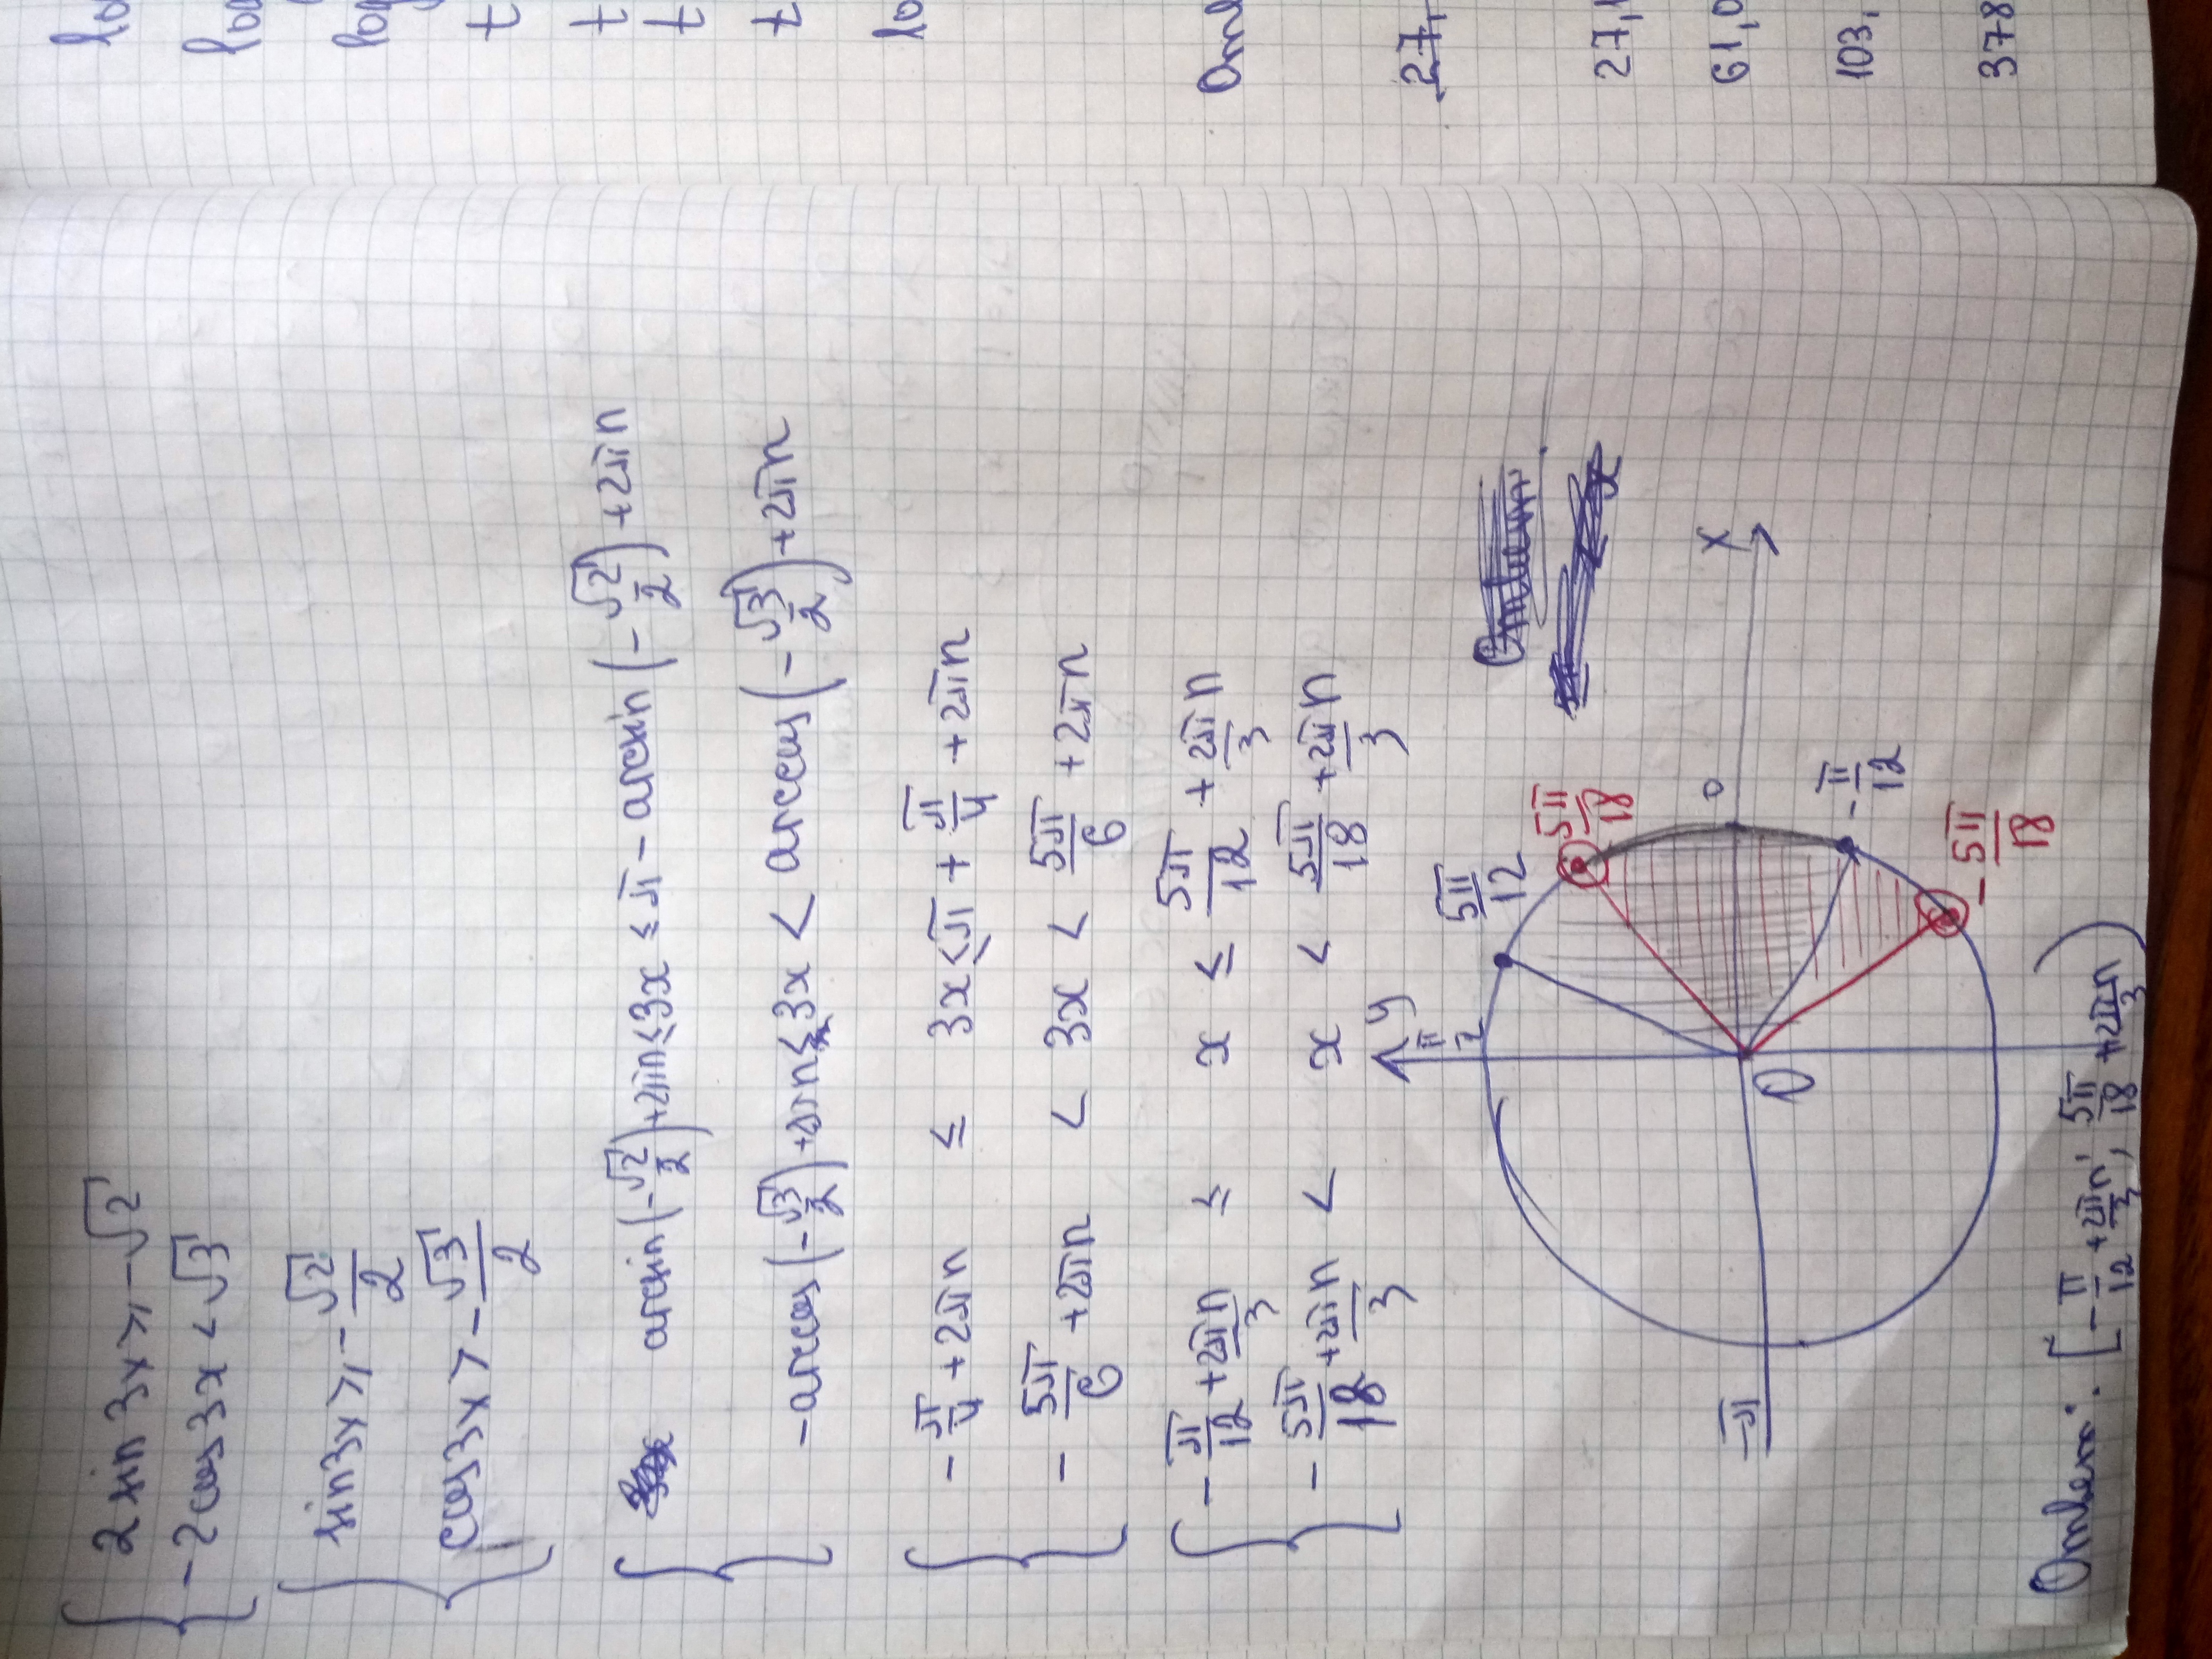 { 2 sin 3x ⩾ -√2
-2cos 3x < √3
{ sin3x ⩾ -√2/2
cos3x > -√3/2
{ arcsin(-√2/2)+2πn ≤ 3x ≤ π - arcsin(-√2/2)+2πn
-arccos(-√3/2)+2πn < 3x < arccos(-√3/2)+2πn
{ -π/4 +2πn ≤ 3x ≤ π + π/4 +2πn
-5π/6 +2πn < 3x < 5π/6 +2πn
{ -π/12 + 2πn/3 ≤ x ≤ 5π/12 + 2πn/3
-5π/18 + 2πn/3 < x < 5π/18 + 2πn/3
y
π/2
5π/12
5π/18
-π
0
0
x
-π/12
-5π/18
Ответ: [-π/12 + 2πn/3; 5π/18 + 2πn/3)
log
t
t
t
t
lo
27,
27,1
61,0
103,
378